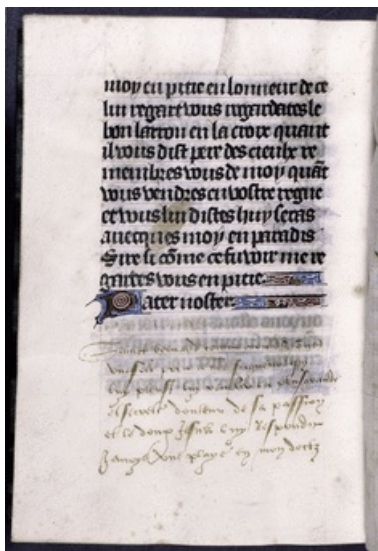 moy en pitie en lonneur de ce
lui regart vous regardates le
bon larron en la croix quant
il vous dist pere des cieulx re
membres vous de moy quāt
vous vendres en vostre regne
et vous lui distes huy seras
avecques moy en paradis
Sire si cōme ce fu voir me re
gardes vous en pitie.
Pater noster.
Saint
vous
demande
et secret douleur de sa passion
et le doux Jesus luy respondit
Jamoys une playe en mon